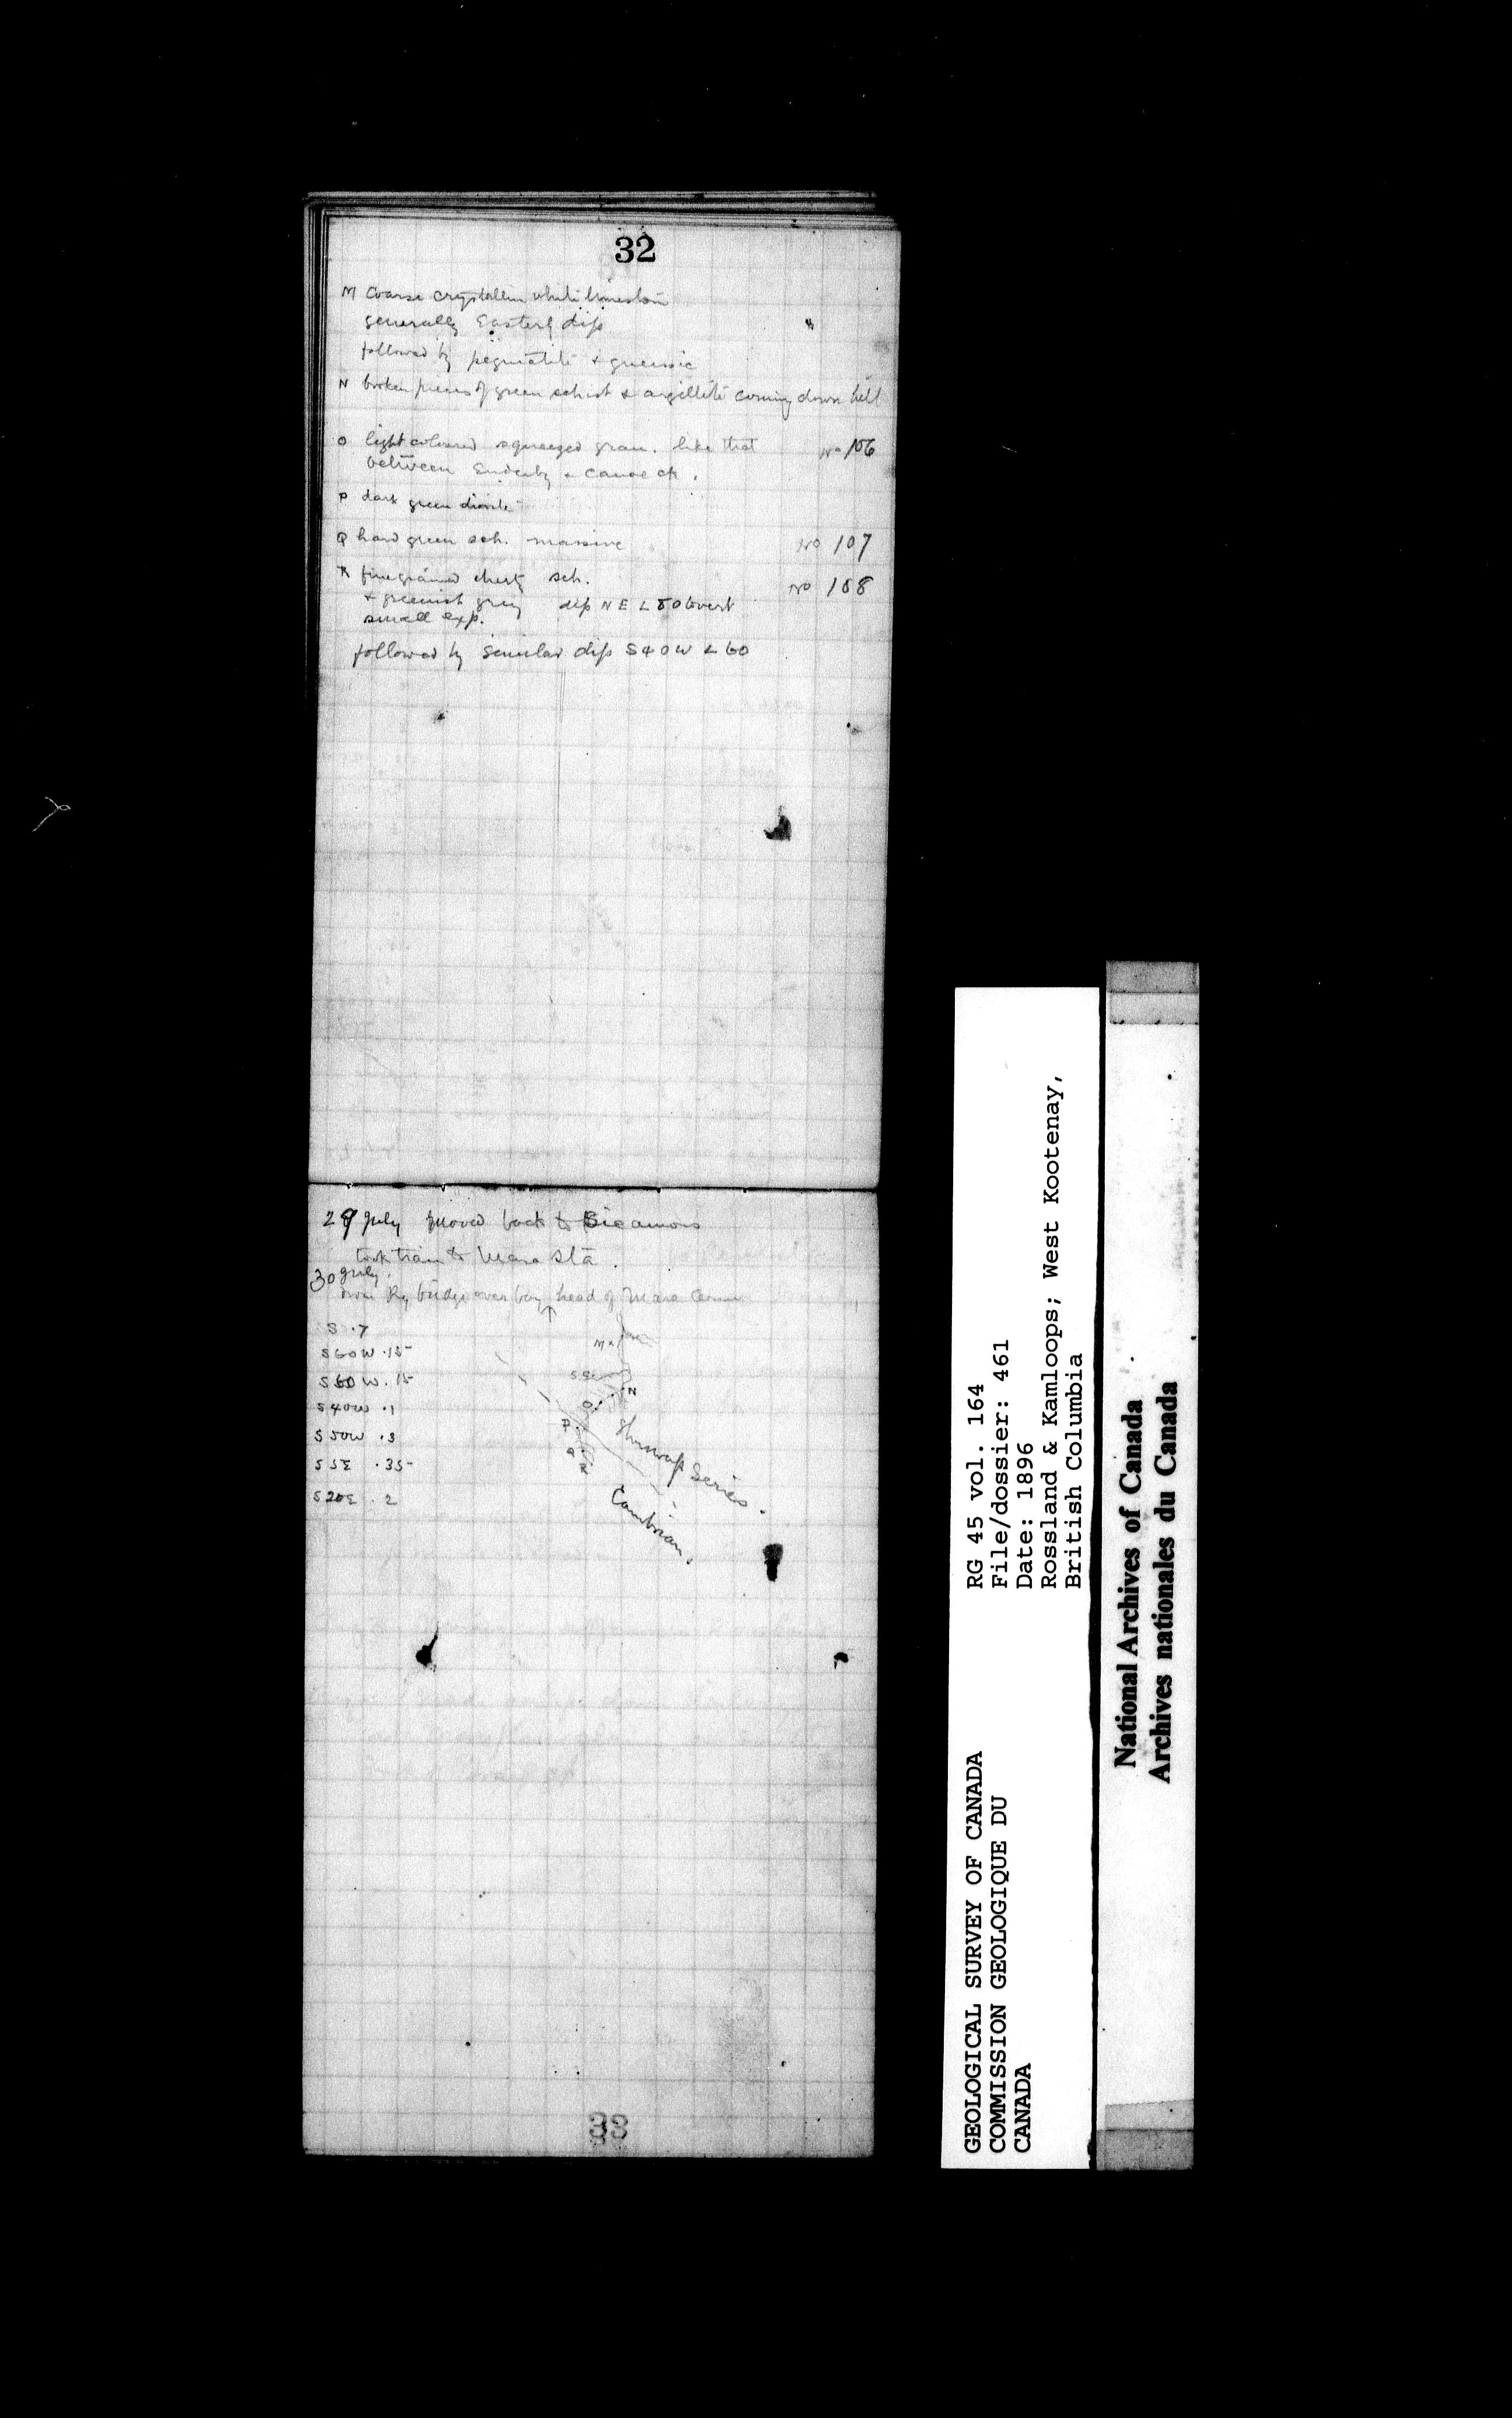 32
M Coarse crystallin white limeston
generally Easterly dip
followed by pegmatite + gneissic
N broken pieces of green schist & argillite coming down hill
O light coloured squeezed gran. like that No 106
between Enderby & Canoe ck.
P dark green diorite
Q hard green sch. massive No 107
R fine grained cherty sch. No 108
+ greenish grey dip N E L 80 to vert
small exp.
followed by similar dip S 40 W L 60
29 July moved back to Sicamous
took train to Mara Sta.
30 July
from Ry bridge over bay head of Mara
S .7
S 60 W .15
S 60 W .15
S 40 W .1
S 50 W .3
S 5 E .35
S 20 E .2
M
N
O
P
Q
R
Shuswap Series.
Cambrian.
33
RG 45 vol. 164
File/dossier: 461
Date: 1896
Rossland & Kamloops; West Kootenay,
British Columbia
GEOLOGICAL SURVEY OF CANADA
COMMISSION GEOLOGIQUE DU
CANADA
National Archives of Canada
Archives nationales du Canada